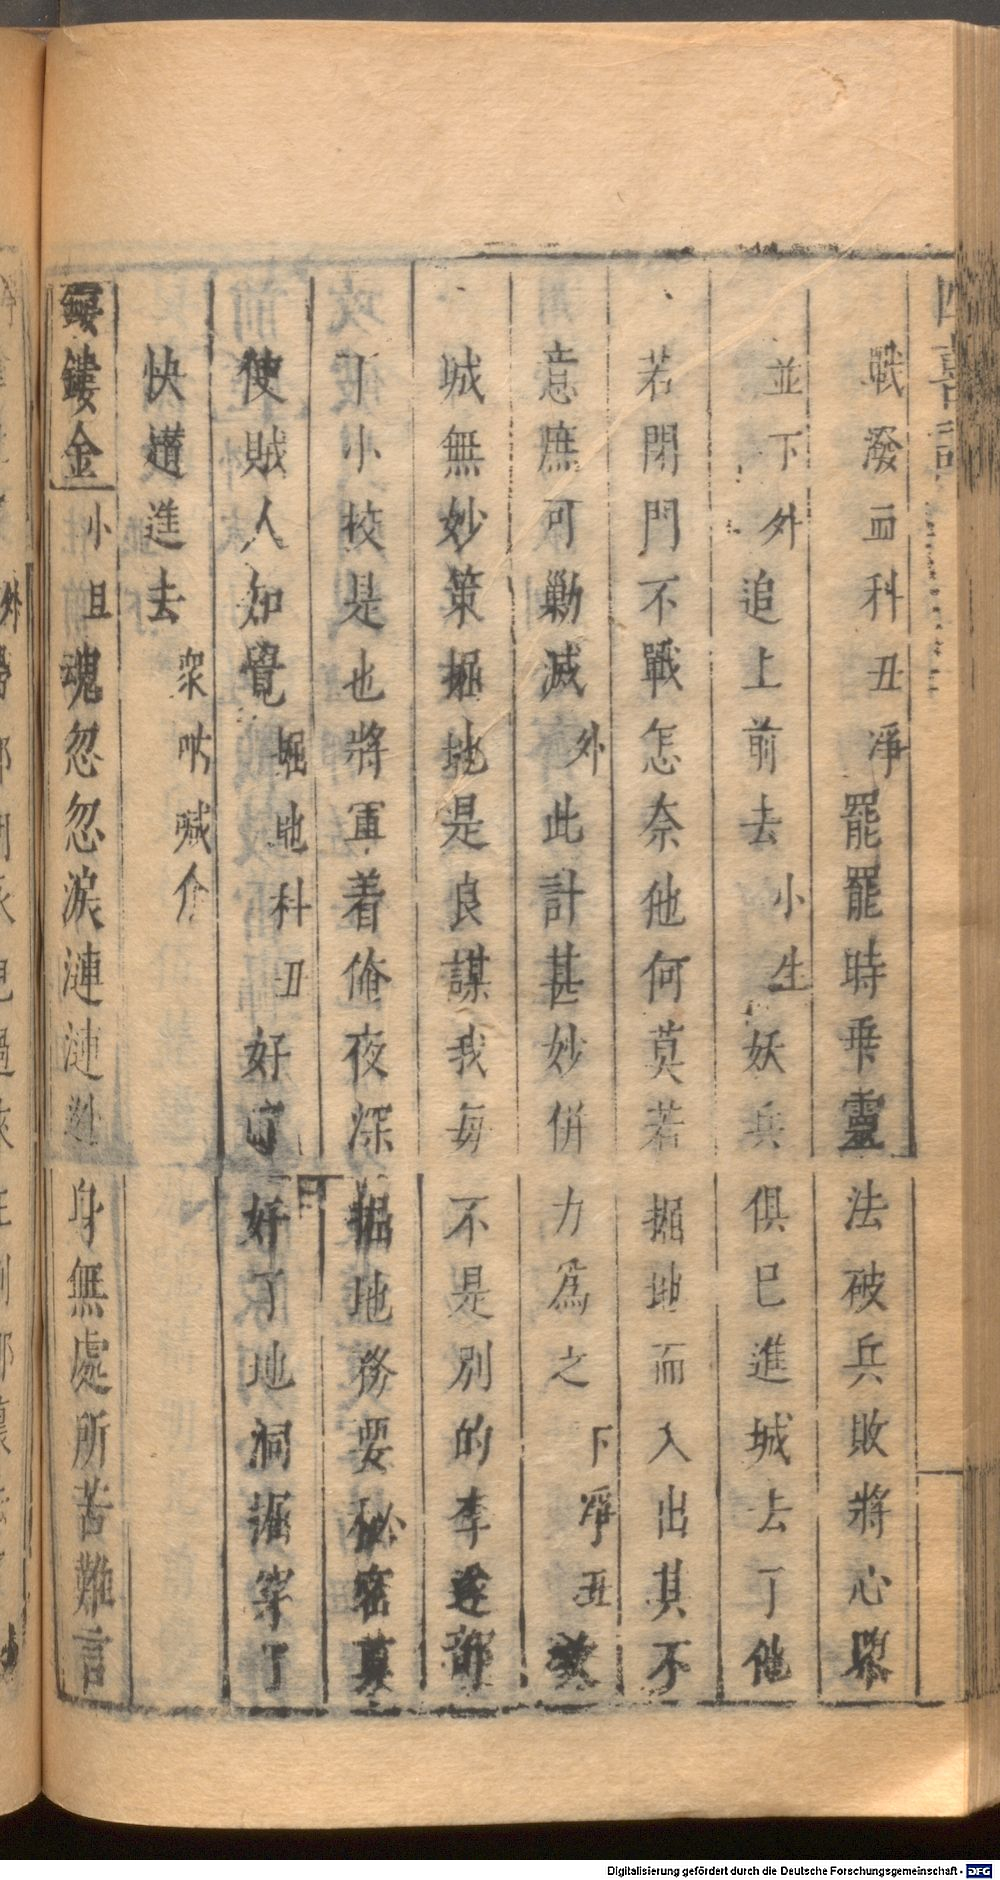 戰潑血科丑淨罷罷時乖靈法破兵敗將心
並下外追上前去小生妖兵俱已進城去了他
若閉門不戰怎奈他何莫若掘地而入出其不
意庶可勦滅外此計甚妙併力為之下淨丑攻
城無妙策掘地是良謀我每不是別的李遂部
下小校是也將軍着俺夜深掘地務要秘密莫
使賊人知覺掘地科丑好了好了地洞掘穿了
快趲進去衆吶喊介
縷縷金小旦魂忽忽淚漣漣身無處所苦難言
Digitalisierung gefördert durch die Deutsche Forschungsgemeinschaft - DFG